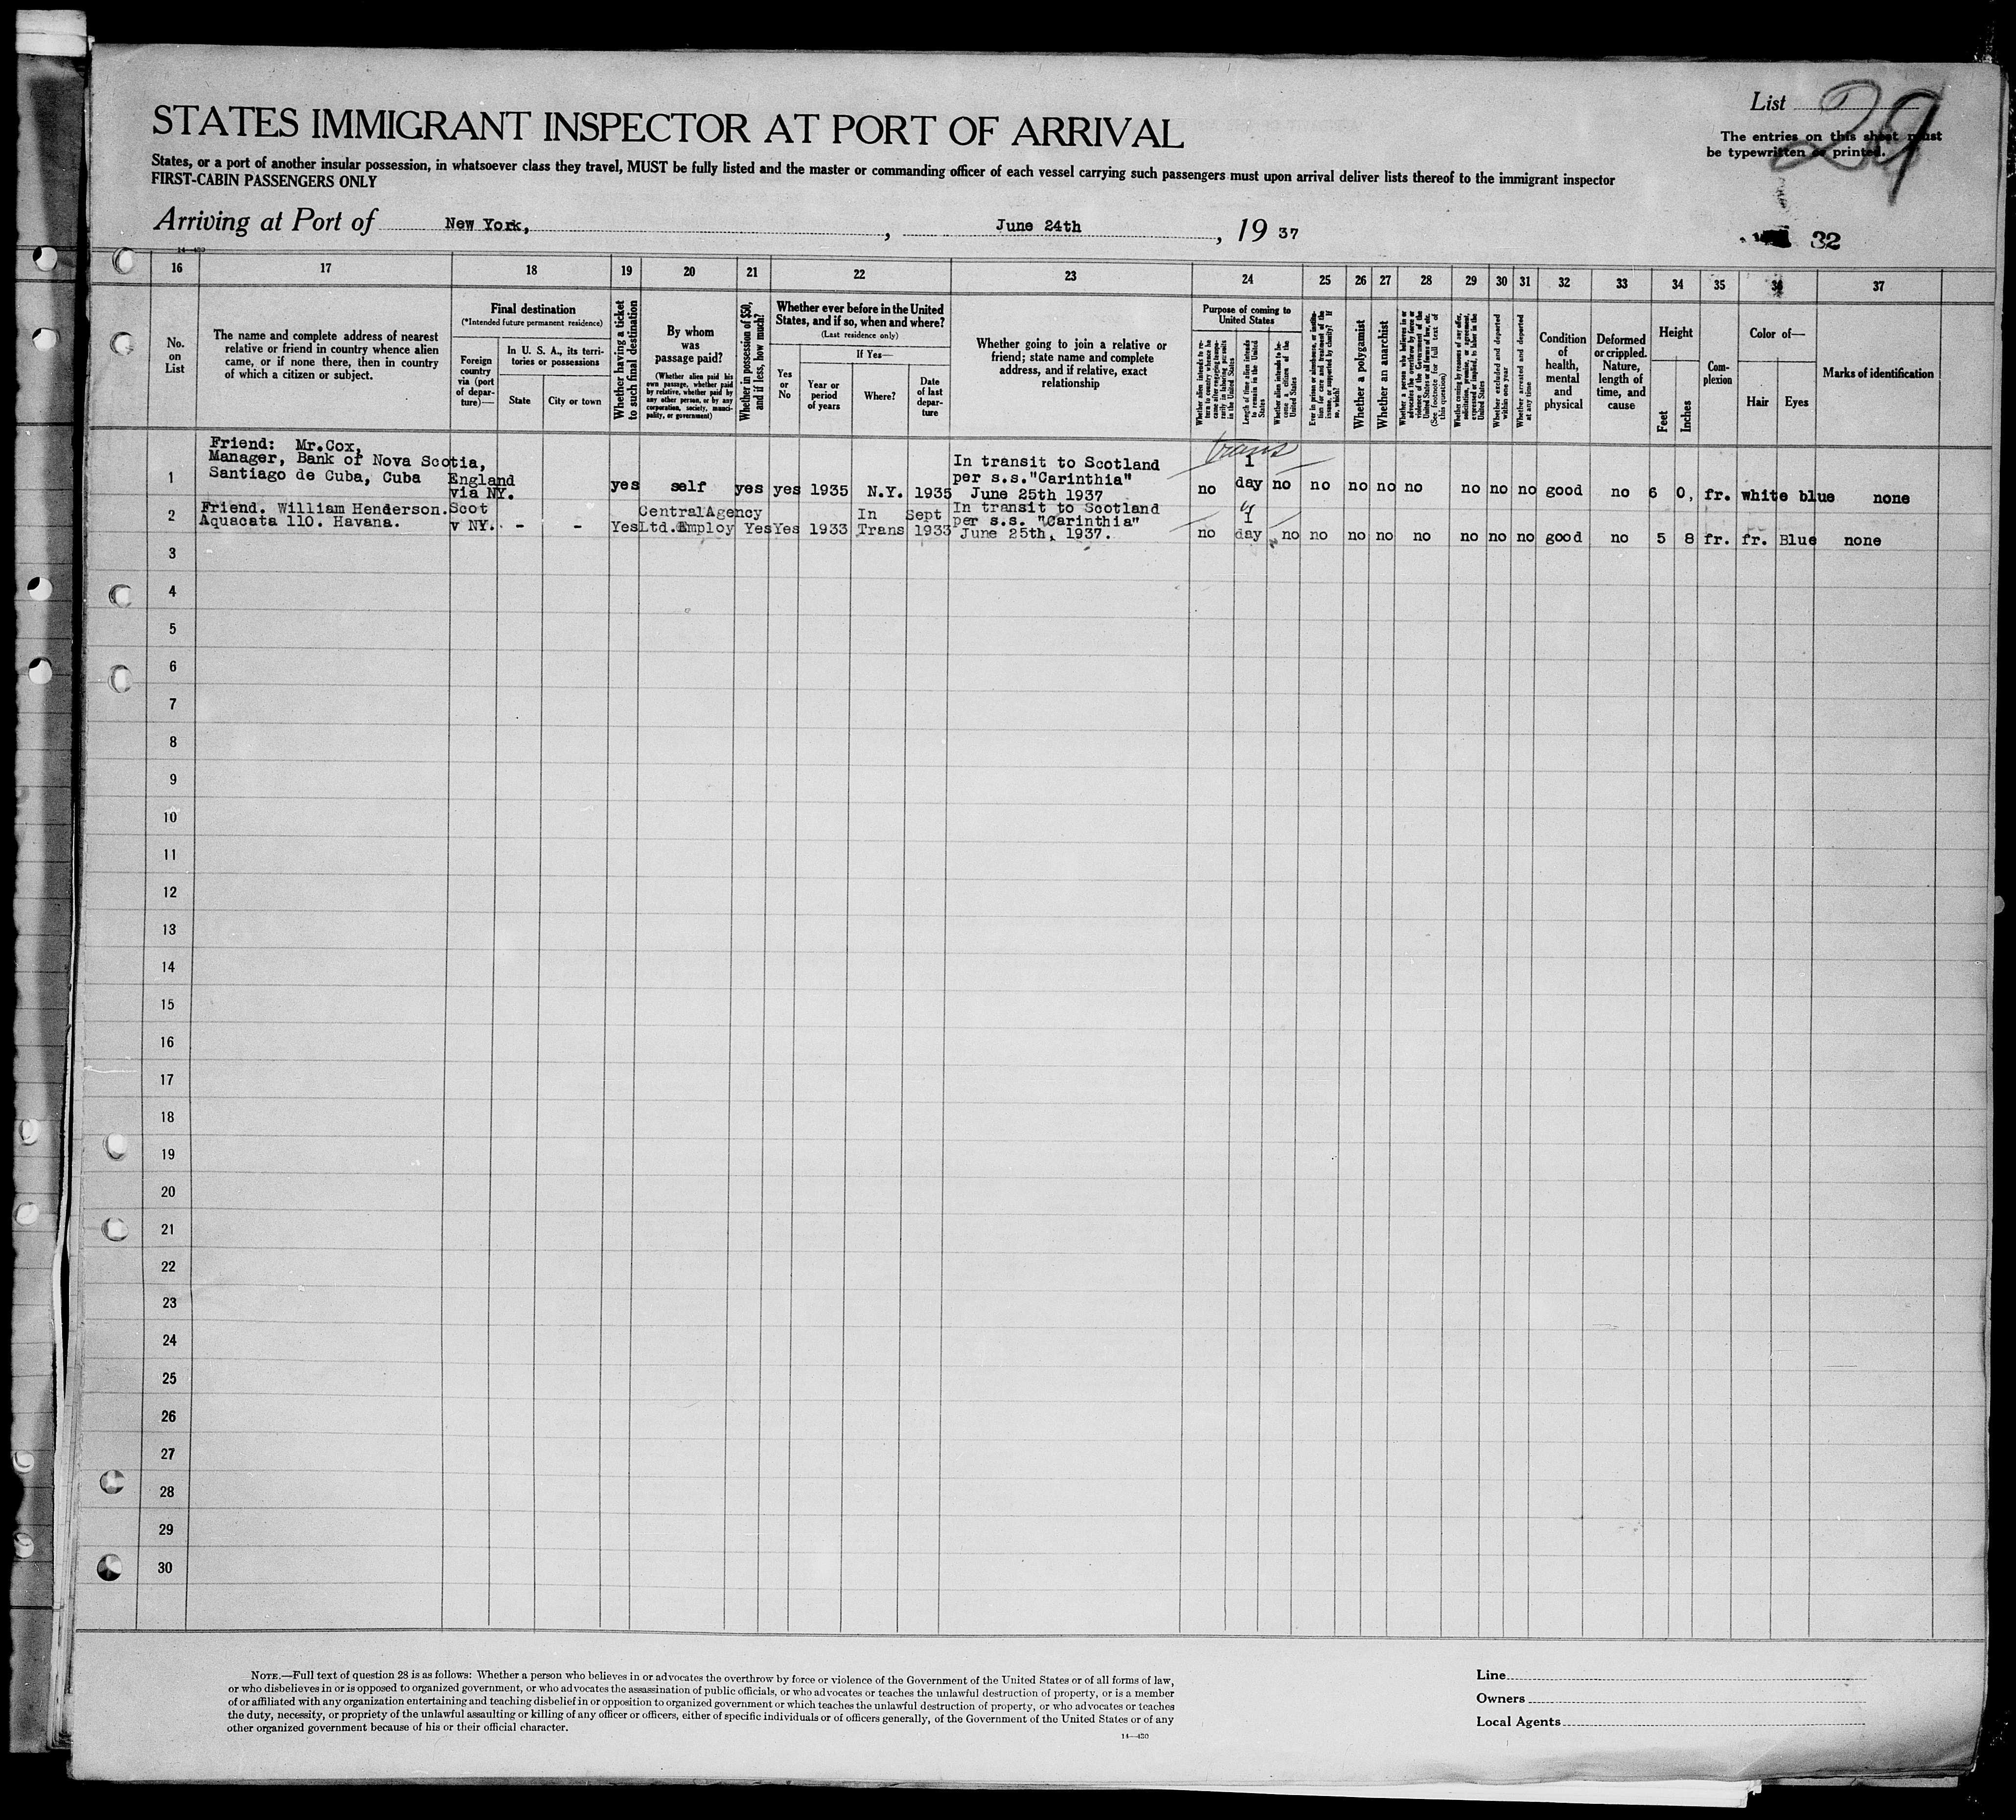 List 29
STATES IMMIGRANT INSPECTOR AT PORT OF ARRIVAL
The entries on this sheet must
be typewritten or printed.
States, or a port of another insular possession, in whatsoever class they travel, MUST be fully listed and the master or commanding officer of each vessel carrying such passengers must upon arrival deliver lists thereof to the immigrant inspector
FIRST-CABIN PASSENGERS ONLY
Arriving at Port of New York, , June 24th , 19 37
32
14—430
16 17 18 19 20 21 22 23 24 25 26 27 28 29 30 31 32 33 34 35 36 37
No.
on
List
The name and complete address of nearest
relative or friend in country whence alien
came, or if none there, then in country
of which a citizen or subject.
Final destination
(*Intended future permanent residence)
Foreign
country
via (port
of depar-
ture)—
In U. S. A., its terri-
tories or possessions
State
City or town
Whether having a ticket
to such final destination
By whom
was
passage paid?
(Whether alien paid his
own passage, whether paid
by relative, whether paid by
any other person, or by any
corporation, society, munici-
pality, or government)
Whether in possession of $50,
and if less, how much?
Whether ever before in the United
States, and if so, when and where?
(Last residence only)
Yes
or
No
If Yes—
Year or
period
of years
Where?
Date
of last
depar-
ture
Whether going to join a relative or
friend; state name and complete
address, and if relative, exact
relationship
Purpose of coming to
United States
Whether alien intends to re-
turn to country whence he
came after engaging tempo-
rarily in laboring pursuits
in the United States
Length of time alien intends
to remain in the United
States
Whether alien intends to be-
come a citizen of the
United States
Ever in prison or almshouse, or institu-
tion for care and treatment of the
insane, or supported by charity? If
so, which?
Whether a polygamist
Whether an anarchist
Whether a person who believes in or
advocates the overthrow by force or
violence of the Government of the
United States or all forms of law, etc.
(See footnote for full text of
this question)
Whether coming by reason of any offer,
solicitation, promise, or agreement,
expressed or implied, to labor in the
United States
Whether excluded and deported
within one year
Whether arrested and deported
at any time
Condition
of
health,
mental
and
physical
Deformed
or crippled.
Nature,
length of
time, and
cause
Height
Feet
Inches
Com-
plexion
Color of—
Hair
Eyes
Marks of identification
trans
1
Friend: Mr.Cox,
Manager, Bank of Nova Scotia,
Santiago de Cuba, Cuba
England
via NY.
yes self yes yes 1935 N.Y. 1935
In transit to Scotland
per s.s."Carinthia"
June 25th 1937
no 1
day no no no no no no no no good no 6 0, fr. white blue none
2
Friend. William Henderson.
Aquacata 110. Havana.
Scot
v NY. - -
Yes CentralAgency
Ltd. Employ Yes Yes 1933 In
Trans Sept
1933
In transit to Scotland
per s.s. "Carinthia"
June 25th, 1937.
no 1
day no no no no no no no no good no 5 8 fr. fr. Blue none
3
4
5
6
7
8
9
10
11
12
13
14
15
16
17
18
19
20
21
22
23
24
25
26
27
28
29
30
NOTE.—Full text of question 28 is as follows: Whether a person who believes in or advocates the overthrow by force or violence of the Government of the United States or of all forms of law,
or who disbelieves in or is opposed to organized government, or who advocates the assassination of public officials, or who advocates or teaches the unlawful destruction of property, or is a member
of or affiliated with any organization entertaining and teaching disbelief in or opposition to organized government or which teaches the unlawful destruction of property, or who advocates or teaches
the duty, necessity, or propriety of the unlawful assaulting or killing of any officer or officers, either of specific individuals or of officers generally, of the Government of the United States or of any
other organized government because of his or their official character.
14—430
Line
Owners
Local Agents